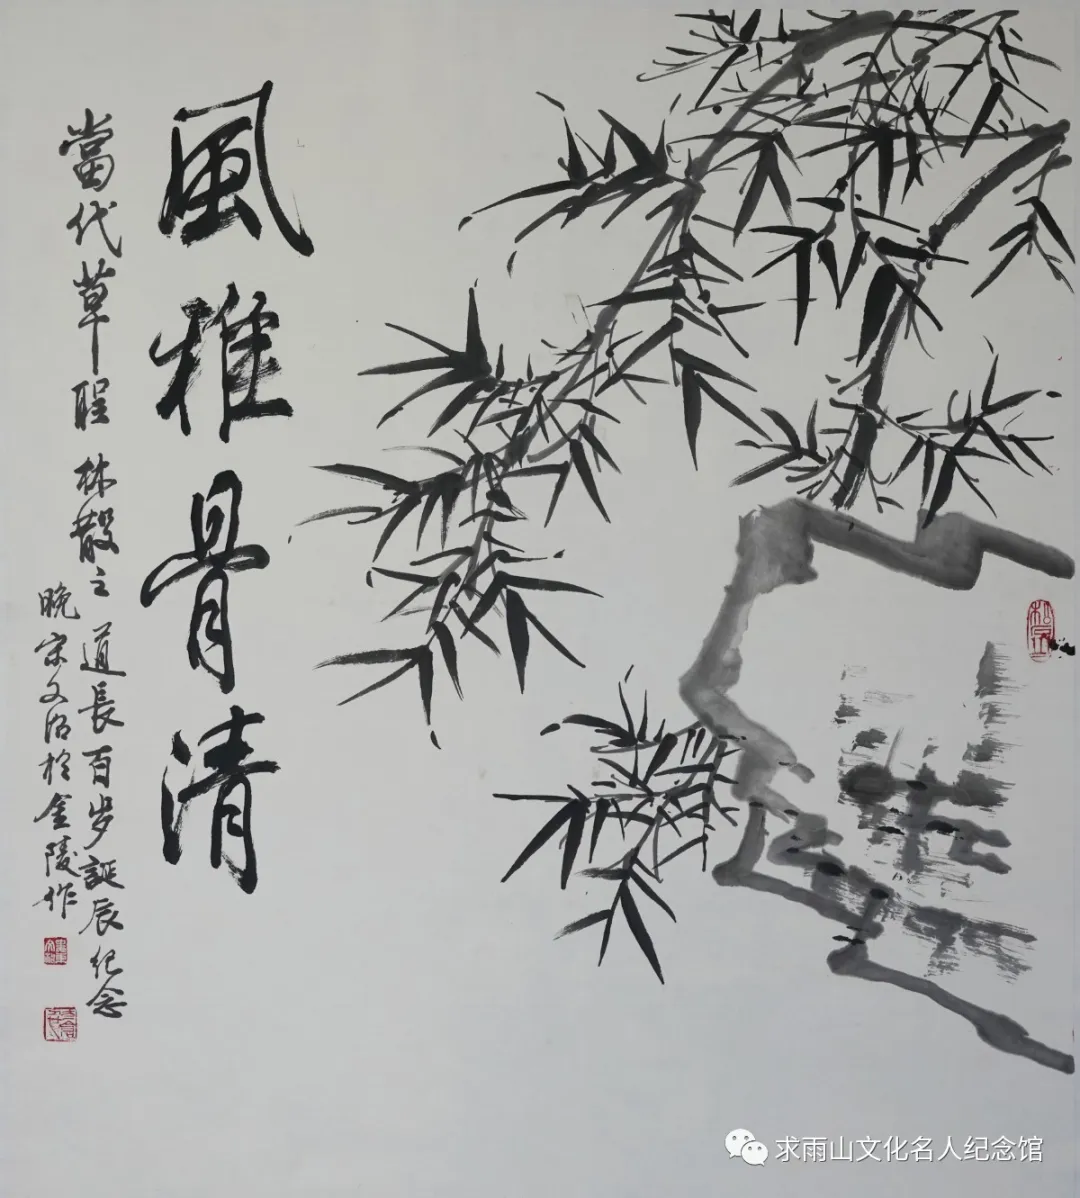 風雅骨清
當代草聖林散之道長百岁誕辰纪念
晚宋文治於金陵作
求雨山文化名人纪念馆